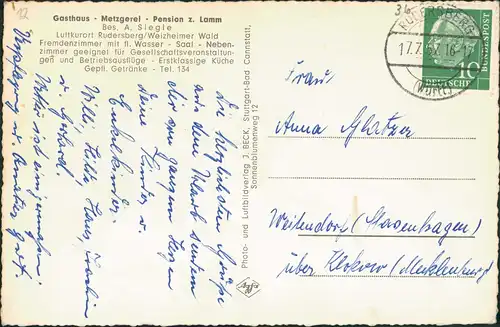 12
Gasthaus - Metzgerei - Pension z. Lamm
Bes. A. Siegle
Luftkurort Rudersberg/Welzheimer Wald
Fremdenzimmer mit fl. Wasser - Saal - Neben-
zimmer für Gesellschaftsveranstaltun-
gen und Betriebsausflüge - Erstklassige Küche
Gepfl. Getränke - Tel. 134
Die herzlichsten Grüße
aus dem Urlaub senden
Dir von ganzem Herzen
deine Kinder u.
Enkelkinder
Willi, Hilde, Hans, Joachim
u. Gerhard.
Wetter ist einigermaßen
Verpflegung u. Quartier gut.
Photo- und Luftbildverlag J. BECK, Stuttgart-Bad Cannstatt,
Sonnenblumenweg 12
Agfa
RUDERSBERG
17.7. 16-17
(WÜRTT)
DEUTSCHE BUNDESPOST
10
Frau
Anna Glatzer
Weitendorf (Stavenhagen)
über Klokow (Mecklenburg)